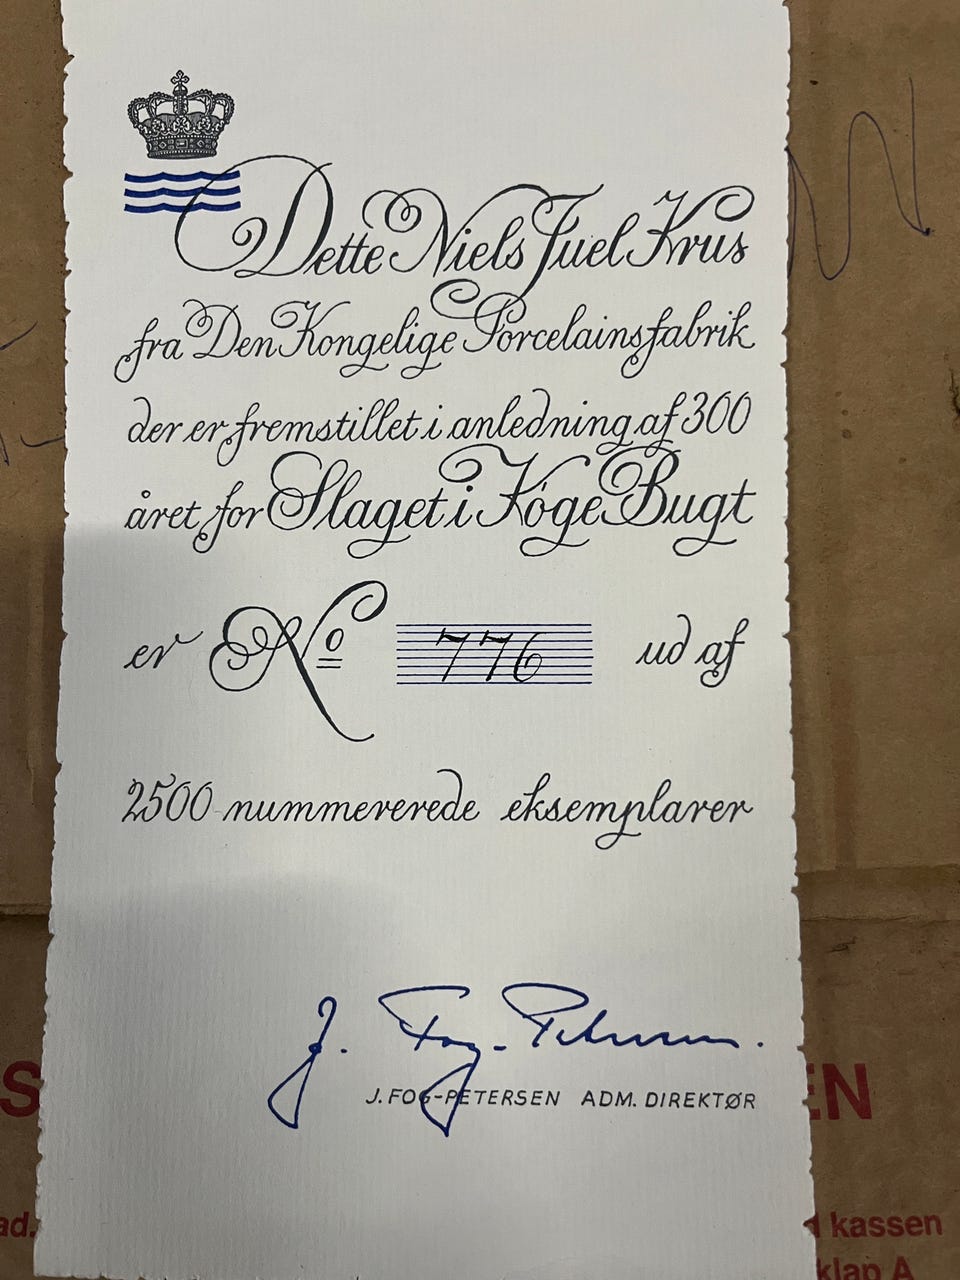 Dette Niels Juel Krus
fra Den Kongelige Porcelainsfabrik
der er fremstillet i anledning af 300
året for Slaget i Køge Bugt
er No 776 ud af
2500 nummererede eksemplarer
J. Fog-Petersen.
J. FOG-PETERSEN ADM. DIREKTØR
S EN
ad. kassen
klap A